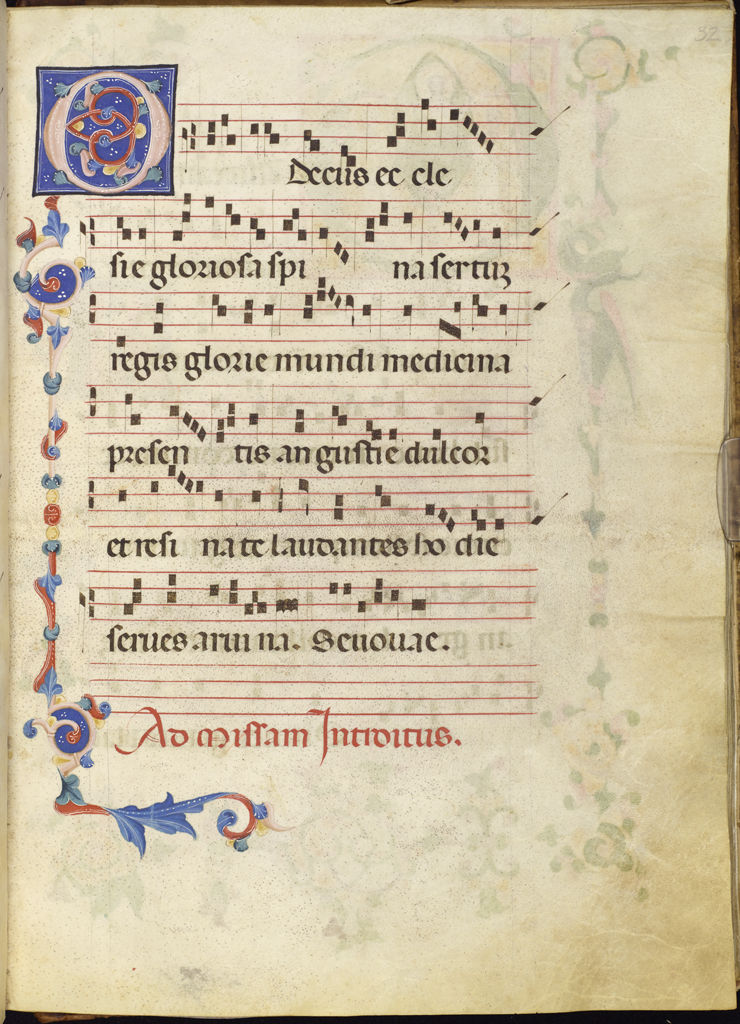 32
O Decus ec cle
sie gloriosa spi na sertum
regis glorie mundi medicina
presen tis angustie dulcor
et resi na te laudantes ho die
serues a rui na. Seuouae.
Ad missam Introitus.